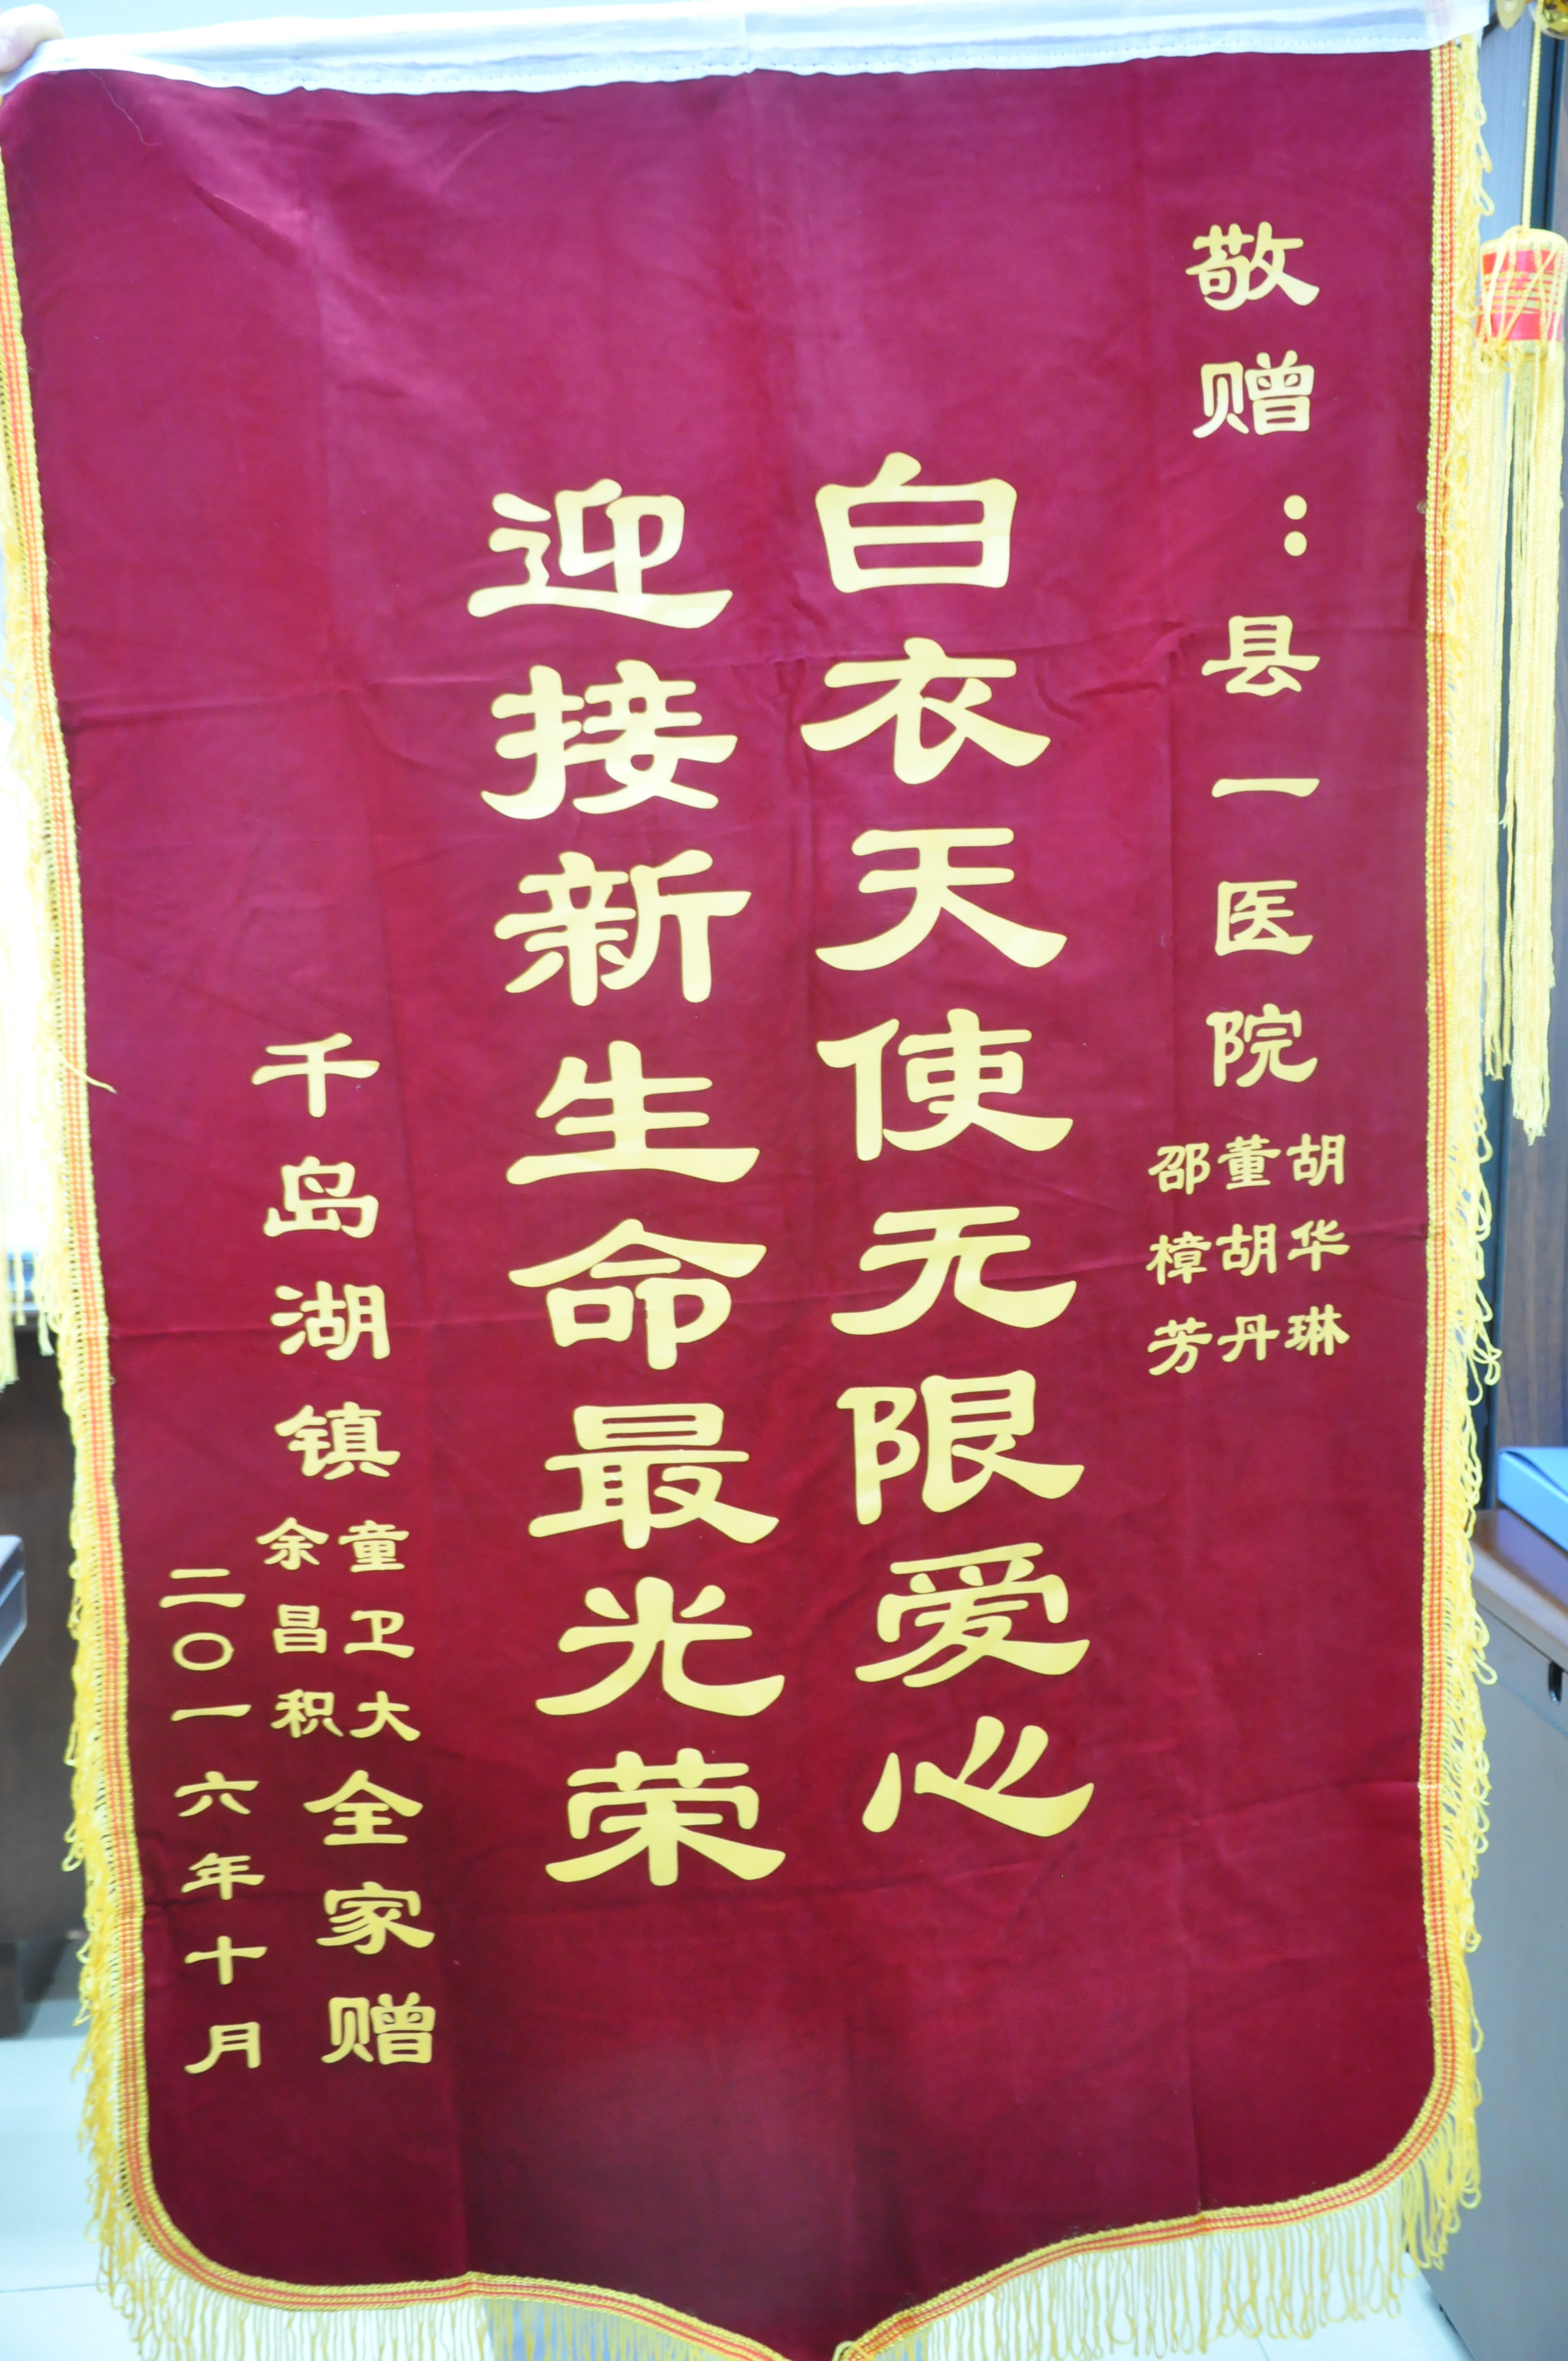 敬赠：县一医院
胡华琳
董胡丹
邵樟芳
白衣天使无限爱心
迎接新生命最光荣
千岛湖镇
童卫大
余昌积
全家赠
二〇一六年十月